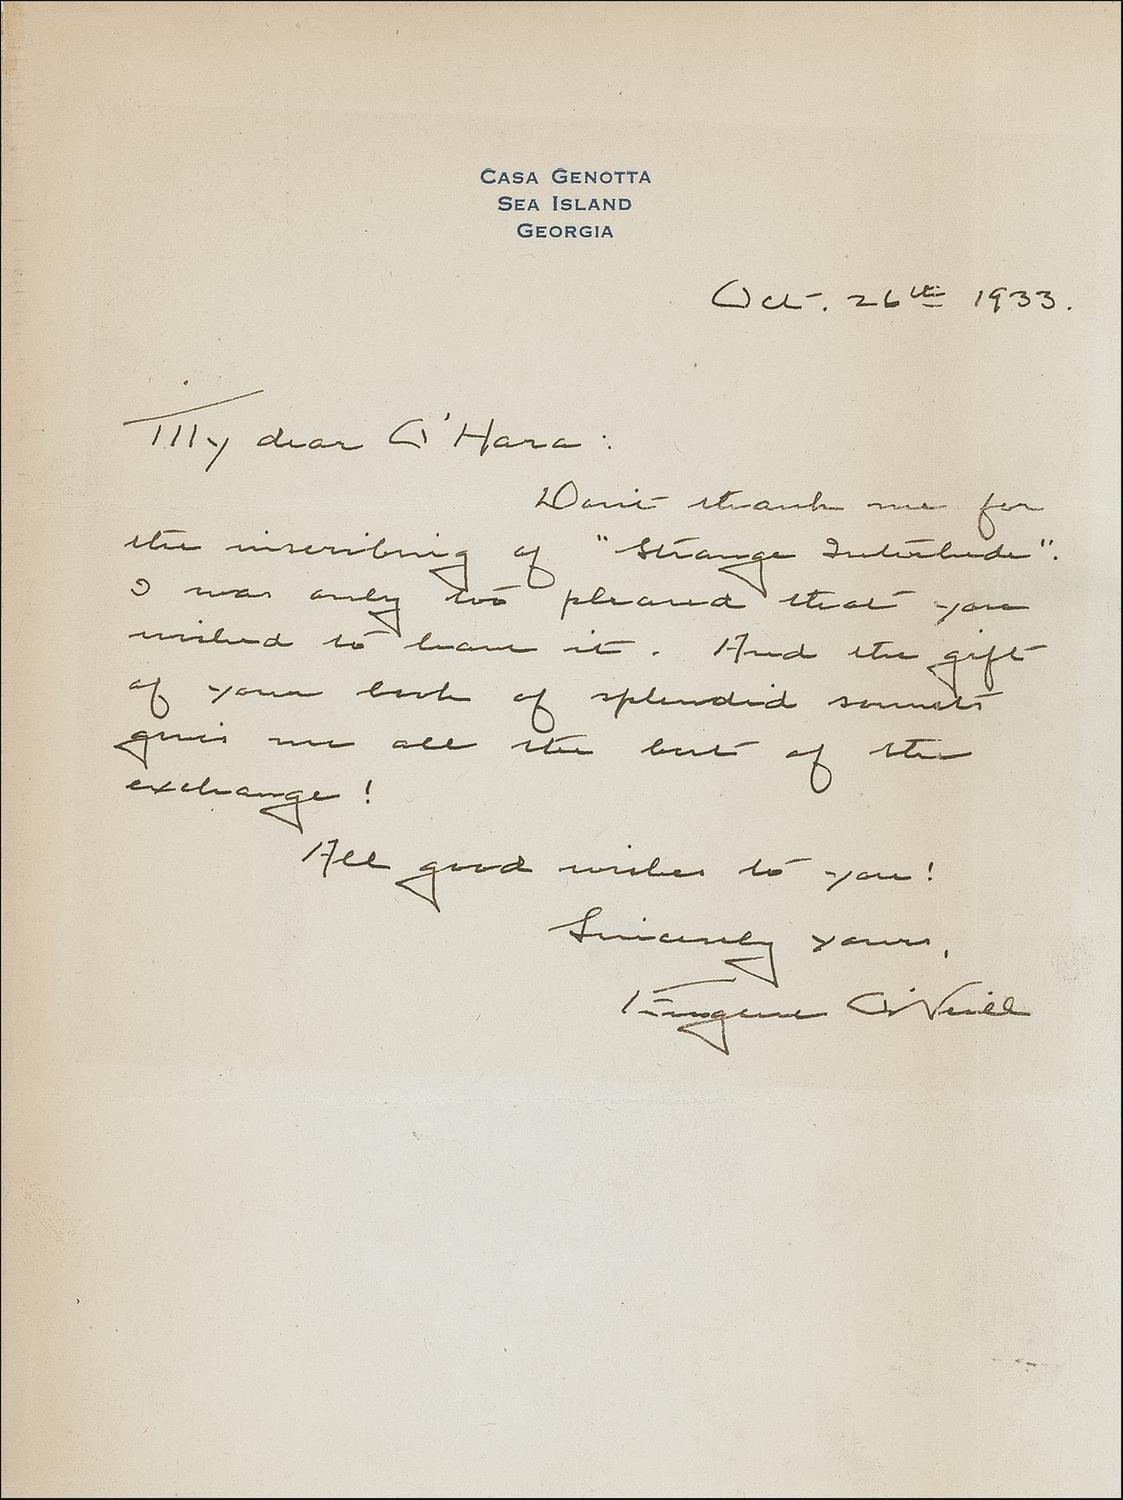 CASA GENOTTA
SEA ISLAND
GEORGIA
Oct. 26th 1933.
My dear O'Hara:
Don't thank me for
the inscribing of "Strange Interlude".
I was only too pleased that you
wished to have it. And the gift
of your book of splendid sonnets
gives me all the best of the
exchange!
All good wishes to you!
Sincerely yours,
Eugene O'Neill